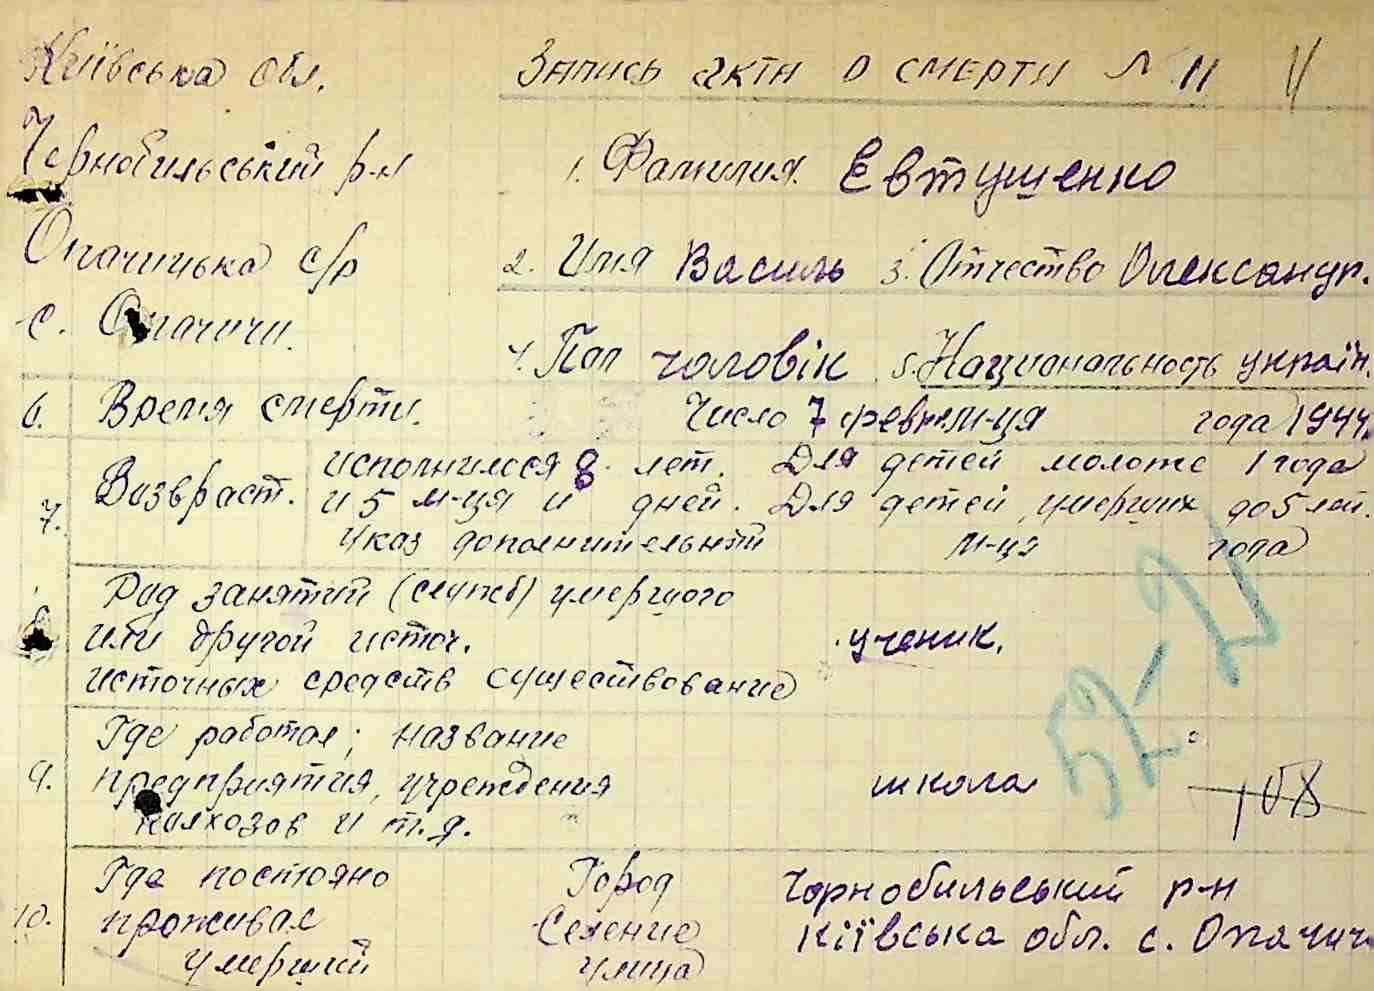 Київська обл.
Запись акта о смерти № 11
Чернобильський р-н
1. Фамилия. Евтушенко
Опачицька с/р
2. Имя Василь 3. Отчество Олександр.
с. Опачичи.
4. Пол чоловік 5. Национальность україн.
6. Время смерти. Число 7 феврал м-ця года 1944.
7. Возвраст. исполнилося 8 лет. Для детей моложе 1 года
и 5 м-ця и дней. Для детей умерших до 5 лет.
Указ дополнительно м-ця года
8. Род занятий (служб) умершого
или другой источ. ученик.
источных средств существование
52-21
9. Где работал; название
предприятия, учреждения школа
колхозов и т.д.
108
10. Где постояно Город Чорнобильський р-н
проживал Селение Київська обл. с. Опачичі
умерший улица